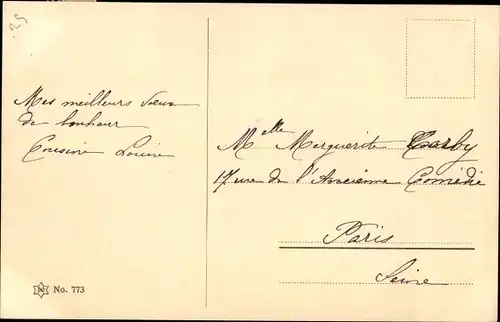 25
Mes meilleurs vœux
de bonheur
Cousine Louise
Melle Marguerite
17 rue de l'Ancienne Comédie
Paris
Seine
No. 773